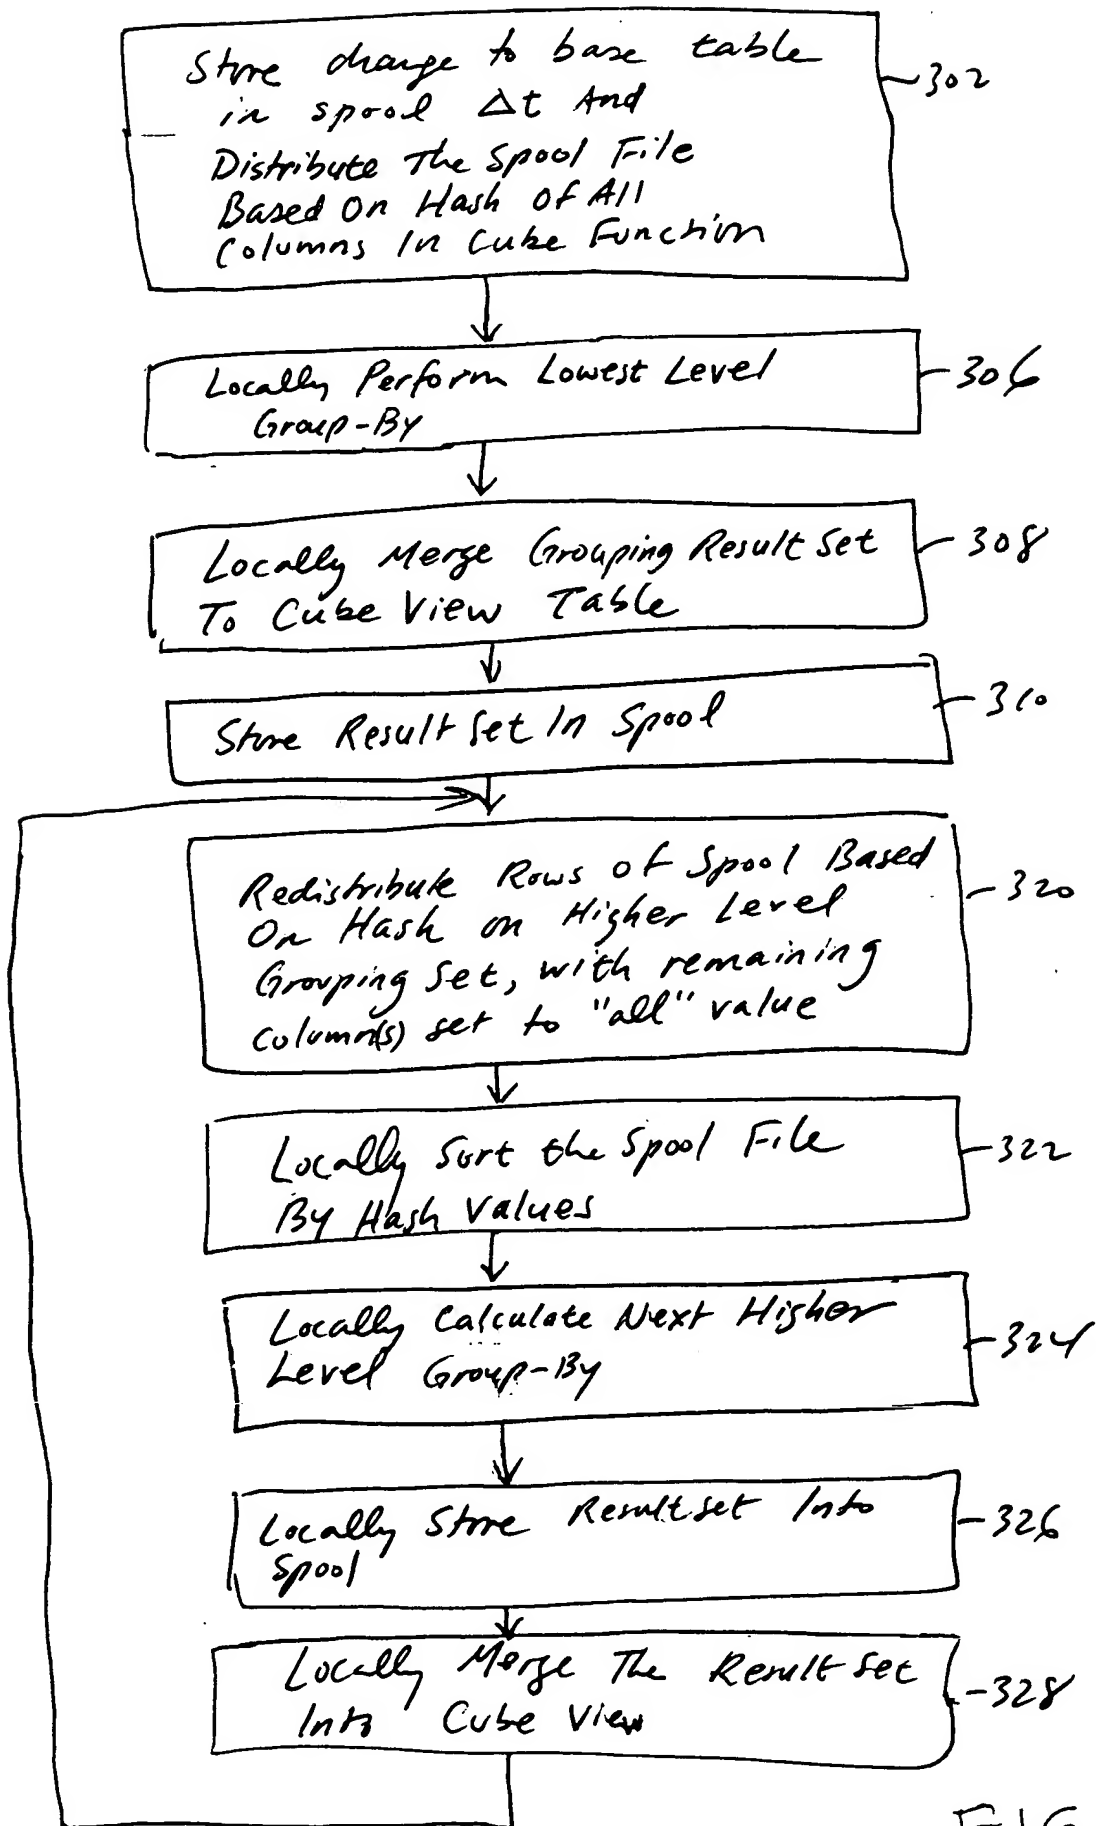 Store change to base table
in spool Δt And
Distribute The Spool File
Based On Hash Of All
Columns In Cube Function
302
Locally Perform Lowest Level
Group-By
306
Locally Merge Grouping Result Set
To Cube View Table
308
Store Result Set In Spool
310
Redistribute Rows of Spool Based
On Hash on Higher Level
Grouping Set, with remaining
column(s) set to "all" value
320
Locally Sort the Spool File
By Hash Values
322
Locally Calculate Next Higher
Level Group-By
324
Locally Store Result set Into
Spool
326
Locally Merge The Result Set
Into Cube View
328
FIG